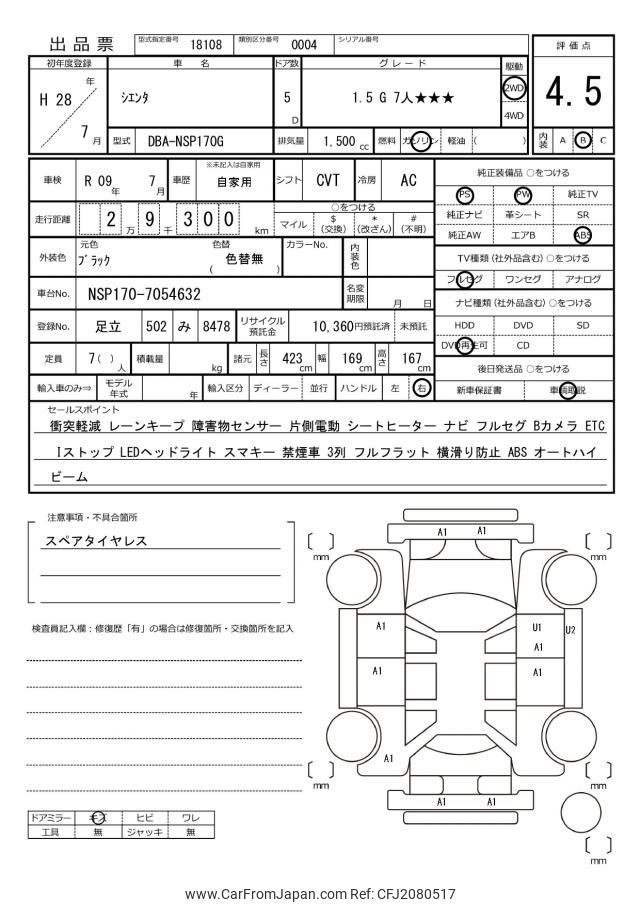 出品票
型式指定番号 18108 類別区分番号 0004 シリアル番号
評価点
4.5
内装 A B C
初年度登録 車名 ドア数 グレード 駆動
H 28 年 7 月
シエンタ
5 D
1.5 G 7人★★★
2WD
4WD
型式 DBA-NSP170G 排気量 1,500 cc 燃料 ガソリン 軽油 ( )
車検 R 09 年 7 月 車歴 ※未記入は自家用 自家用 シフト CVT 冷房 AC
走行距離 2 万 9 千 3 0 0 km
○をつける
マイル $ (交換) * (改ざん) # (不明)
外装色 元色 ブラック 色替 ( 色替無 ) カラーNo. 内装色
車台No. NSP170-7054632 名変期限 月 日
登録No. 足立 502 み 8478 リサイクル預託金 10,360円預託済 未預託
定員 7( ) 人 積載量 kg 諸元 長さ 423 cm 幅 169 cm 高さ 167 cm
輸入車のみ⇒ モデル年式 年 輸入区分 ディーラー 並行 ハンドル 左 右
純正装備品 ○をつける
PS PW 純正TV
純正ナビ 革シート SR
純正AW エアB ABS
TV種類 (社外品含む) ○をつける
フルセグ ワンセグ アナログ
ナビ種類 (社外品含む) ○をつける
HDD DVD SD
DVD再生可 CD
後日発送品 ○をつける
新車保証書 車輌取説
セールスポイント
衝突軽減 レーンキープ 障害物センサー 片側電動 シートヒーター ナビ フルセグ Bカメラ ETC
Iストップ LEDヘッドライト スマキー 禁煙車 3列 フルフラット 横滑り防止 ABS オートハイ
ビーム
注意事項・不具合箇所
スペアタイヤレス
検査員記入欄：修復歴「有」の場合は修復箇所・交換箇所を記入
ドアミラー キズ ヒビ ワレ
工具 無 ジャッキ 無
A1 A1
mm mm
A1 U1 U2
A1
A1 A1
A1
mm mm
A1 A1
mm
www.CarFromJapan.com Ref: CFJ2080517